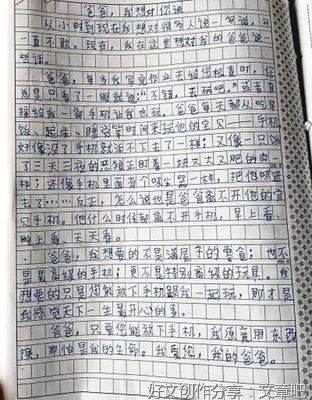 爸爸,我想对你说
从小时到现在我想对很多人说一句话,可一
直不敢。现在,我在这里想对我的爸爸说
些话。
爸爸,每当我写完作业去给您检查时,您
总是只看了一眼就说:“不错,去玩吧。”或者直
接给我一部手机让我也玩。爸爸每天都从吃早
饭、起床、睡觉等时间里玩他的宝贝——手机
好像没了手机就活不下去了一样;又像一只饿
了三天三夜的恶狼正盯着一块又大又肥的肉
一样;还像手机里面有个吸尘器一样,把他吸进
去了……反正,怎么说也是爸爸离不开他的宝
贝手机。他什么时候都离不开手机,早上看、
晚上看、天天看。
爸爸,我想要的不是满屋子的零食;也不
是最高级的手机;更不是特别高级的玩具。我
想要的只是您能放下手机跟我一起玩,那才是
我感觉天下一生最开心的事。
爸爸,只要您能放下手机,我愿意用东西
换,那怕是我的生命。我爱您,我的爸爸。
好文创作分享:文章吧